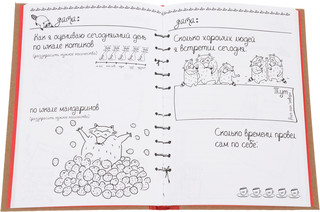 дата:
Как я оцениваю сегодняшний день
по шкале котиков
(раскрасить нужное количество)
по шкале мандаринов
(раскрасить нужное количество)
дата:
Сколько хороших людей
я встретил сегодня:
Тут
Сколько времени провел
сам по себе: